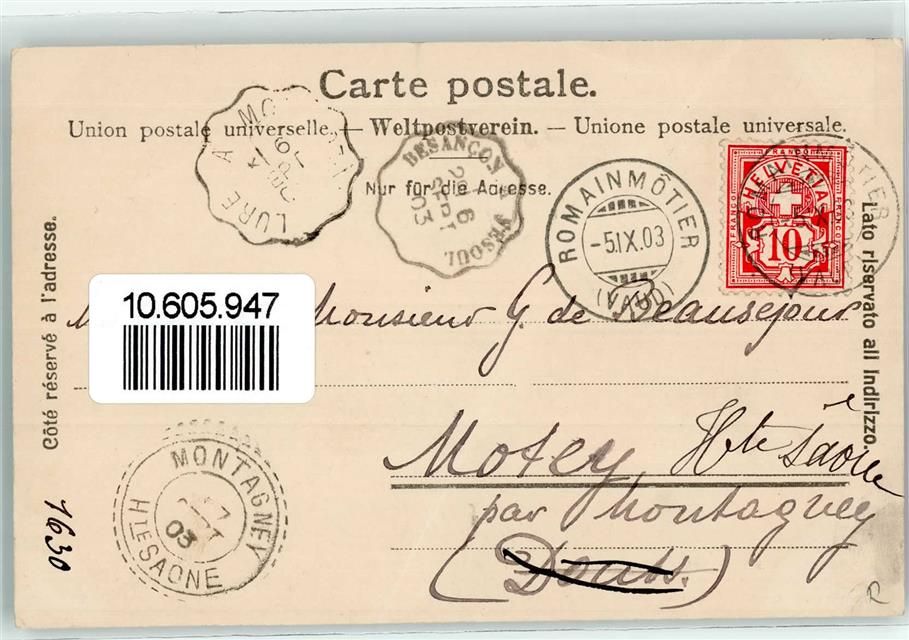 Carte postale.
Union postale universelle. — Weltpostverein. — Unione postale universale.
Nur für die Adresse.
Côté réservé à l'adresse.
Lato riservato all indirizzo.
LURE A
BESANÇON A VESOUL
6
SEPT
03
ROMAINMÔTIER
-5.IX.03
(VAUD)
FRANCO
HELVETIA
10
10.605.947
Monsieur G. de Beauséjour
Motey Hte Saône
par Montagney
(Doubs.)
MONTAGNEY
HTE SAONE
7
03
1630
R